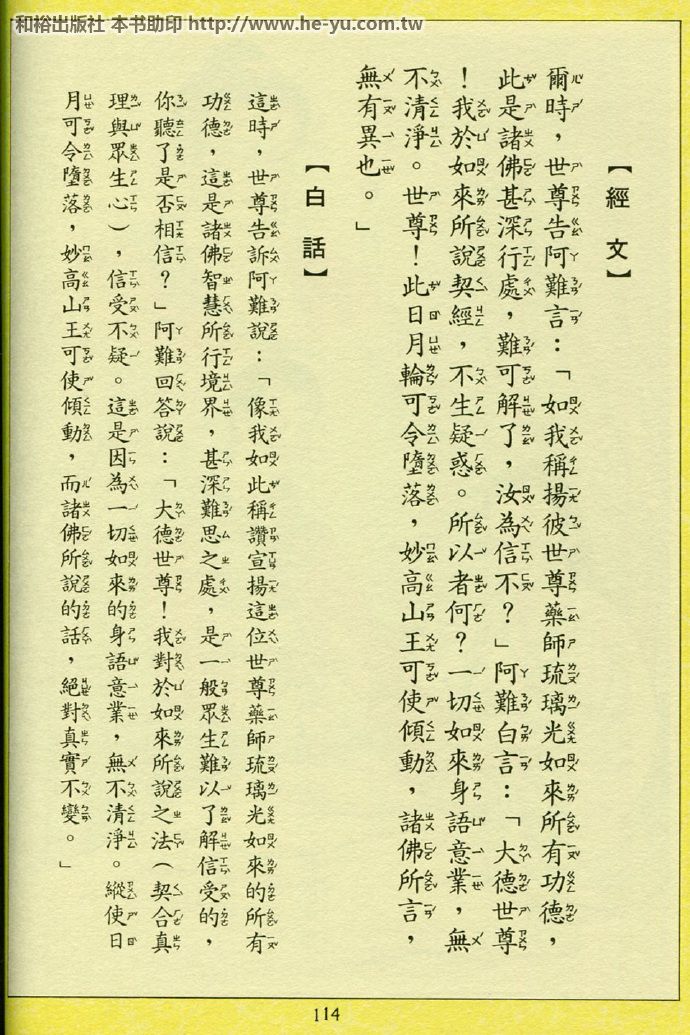 和裕出版社 本书助印 http://www.he-yu.com.tw
【經文】
爾時，世尊告阿難言：「如我稱揚彼世尊藥師琉璃光如來所有功德，
此是諸佛甚深行處，難可解了，汝為信不？」阿難白言：「大德世尊
！我於如來所說契經，不生疑惑。所以者何？一切如來身語意業，無
不清淨。世尊！此日月輪可令墮落，妙高山王可使傾動，諸佛所言，
無有異也。」
【白話】
這時，世尊告訴阿難說：「像我如此稱讚宣揚這位世尊藥師琉璃光如來的所有
功德，這是諸佛智慧所行境界，甚深難思之處，是一般眾生難以了解信受的，
你聽了是否相信？」阿難回答說：「大德世尊！我對於如來所說之法（契合真
理與眾生心），信受不疑。這是因為一切如來的身語意業，無不清淨。縱使日
月可令墮落，妙高山王可使傾動，而諸佛所說的話，絕對真實不變。」
114